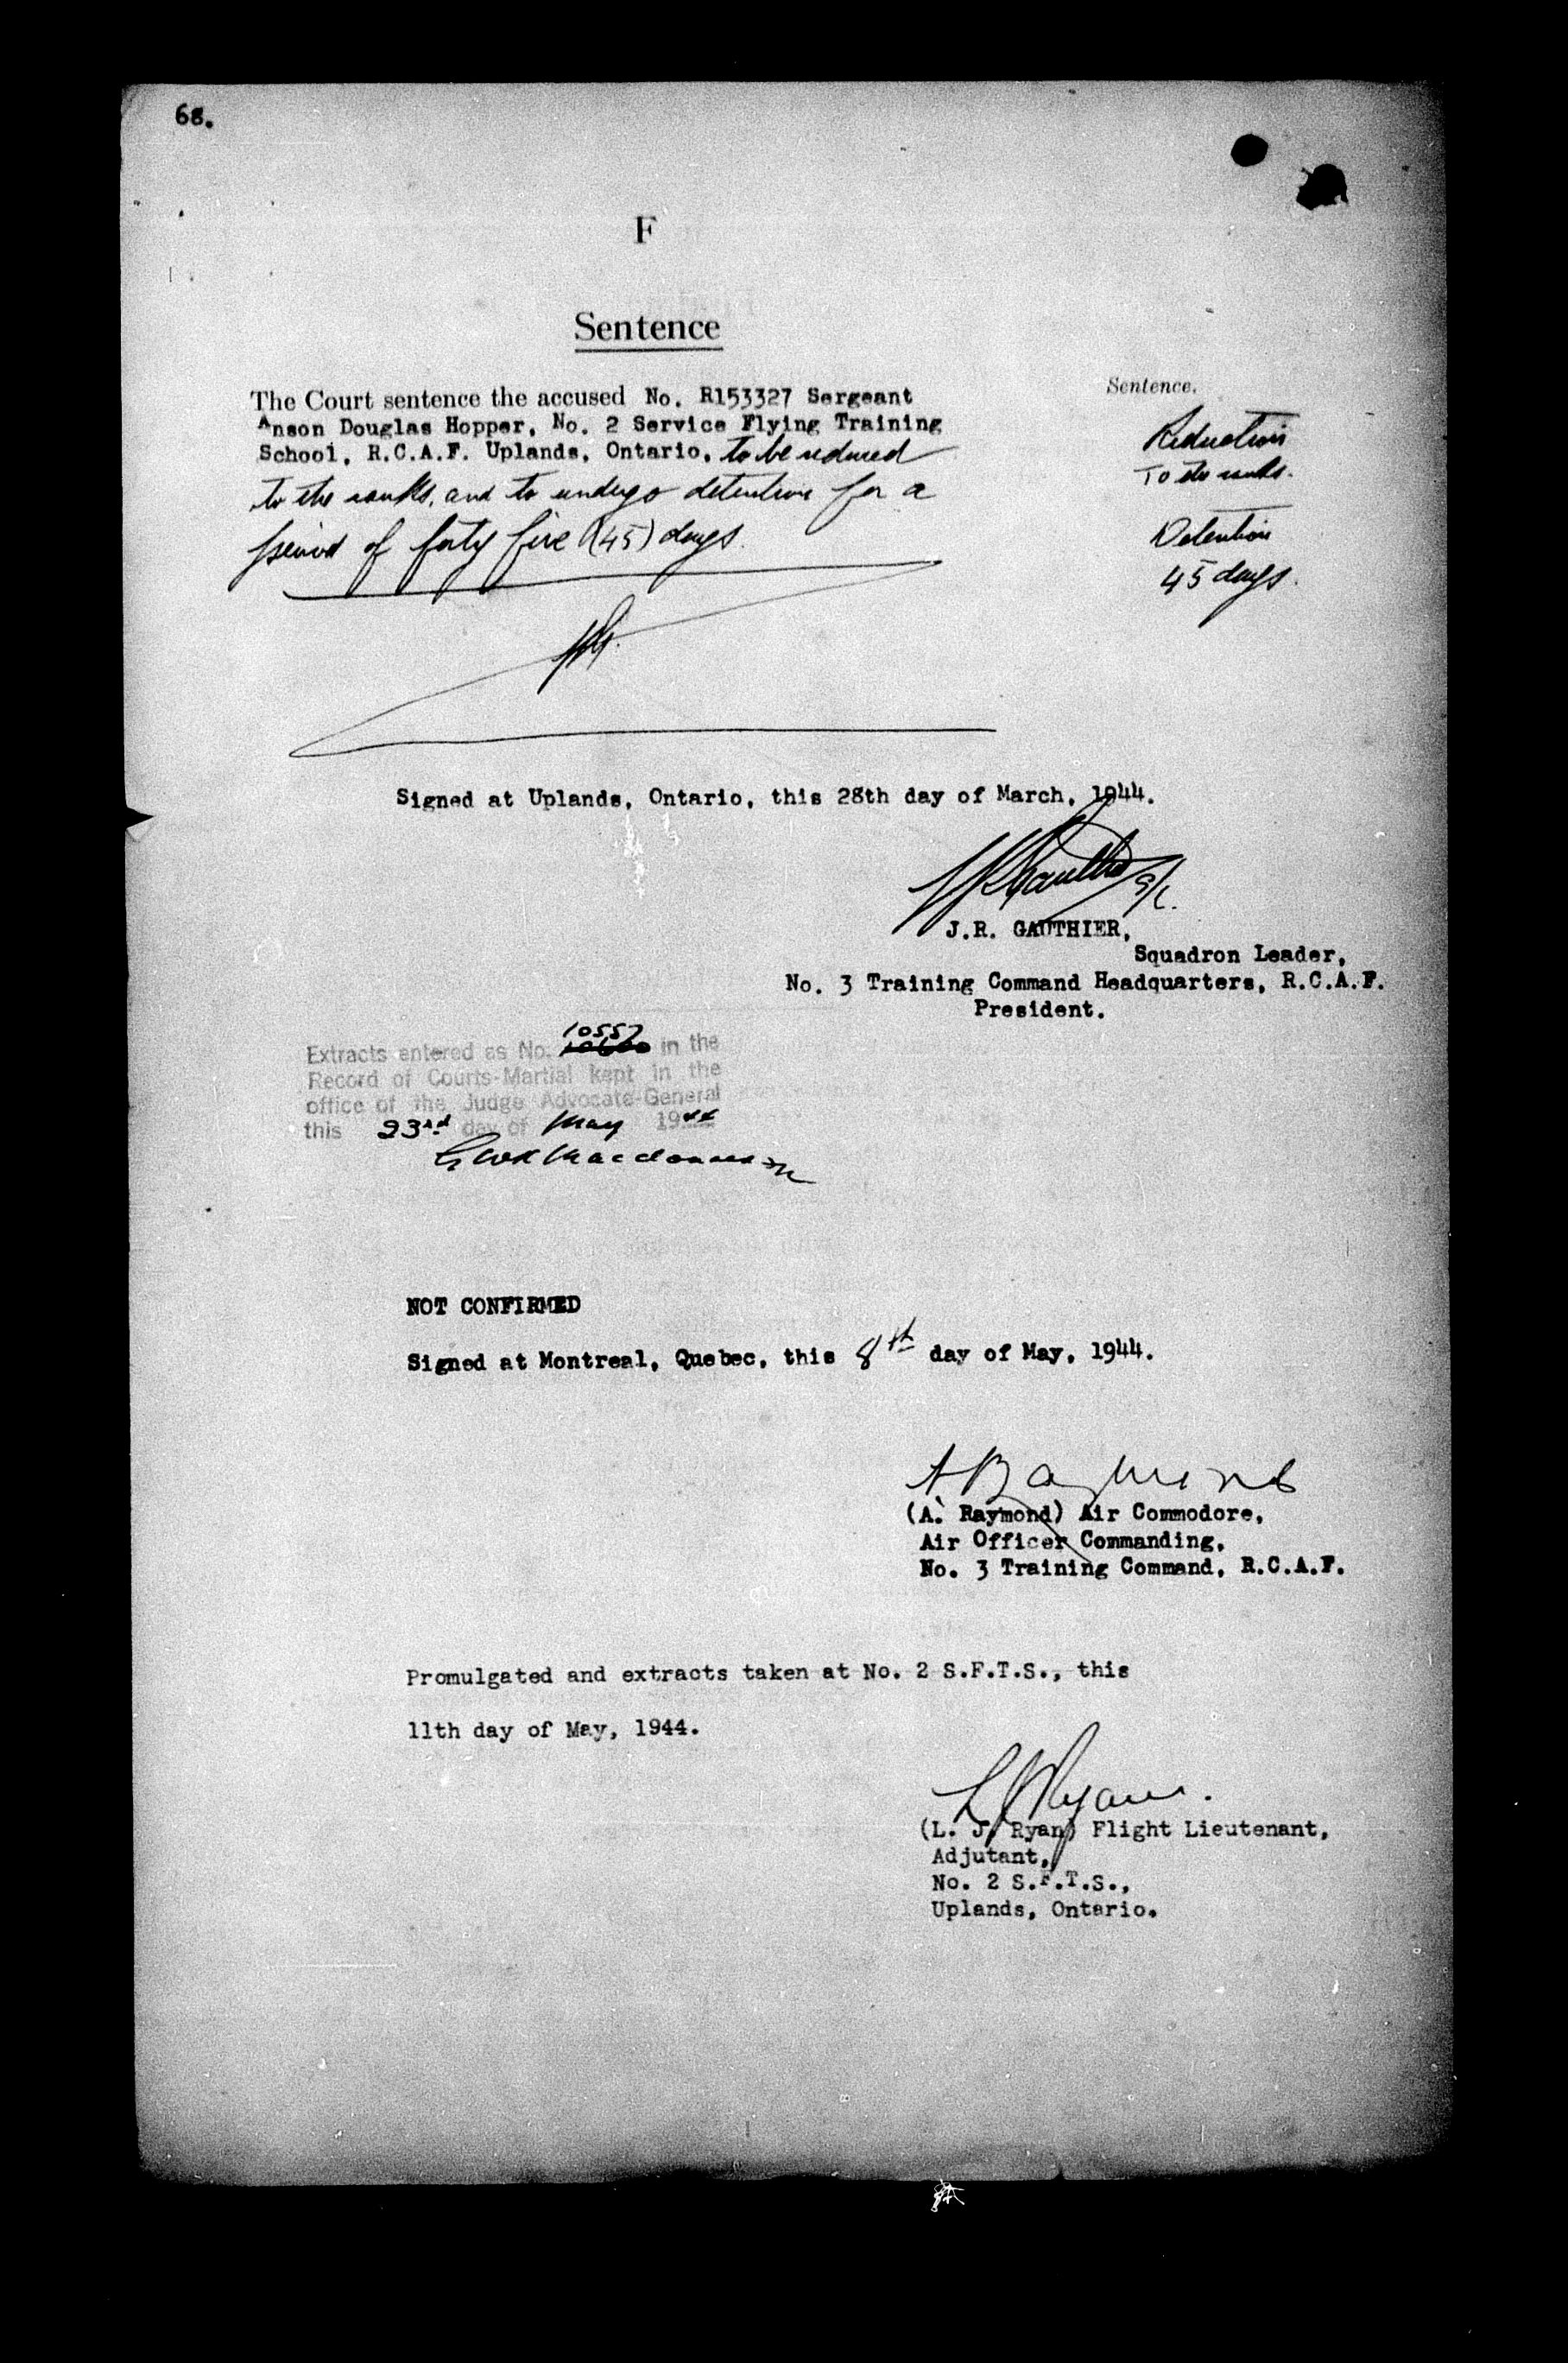 68.
F
Sentence
The Court sentence the accused No. R153327 Sergeant
Anson Douglas Hopper, No. 2 Service Flying Training
School, R.C.A.F. Uplands, Ontario, to be reduced
to the ranks, and to undergo detention for a
period of forty five (45) days.
Sentence.
Reduction
To the ranks.
Detention
45 days.
Signed at Uplands, Ontario, this 28th day of March, 1944.
J.R. GAUTHIER,
Squadron Leader,
No. 3 Training Command Headquarters, R.C.A.F.
President.
10557
Extracts entered as No. in the
Record of Courts-Martial kept in the
office of the Judge Advocate-General
this 23rd day of May 1944
NOT CONFIRMED
Signed at Montreal, Quebec, this 8th day of May, 1944.
A Raymond
(A. Raymond) Air Commodore,
Air Officer Commanding,
No. 3 Training Command, R.C.A.F.
Promulgated and extracts taken at No. 2 S.F.T.S., this
11th day of May, 1944.
L J Ryan.
(L. J. Ryan) Flight Lieutenant,
Adjutant,
No. 2 S.F.T.S.,
Uplands, Ontario.